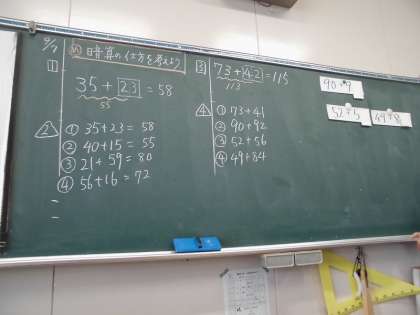 9/7
め 暗算のし方を考えよう
1
35+23=58
55
2
① 35+23= 58
② 40+15= 55
③ 21+59= 80
④ 56+16= 72
3
73+42=115
113
4
① 73+41
② 90+92
③ 52+56
④ 49+84
90+9
52+5
49+8